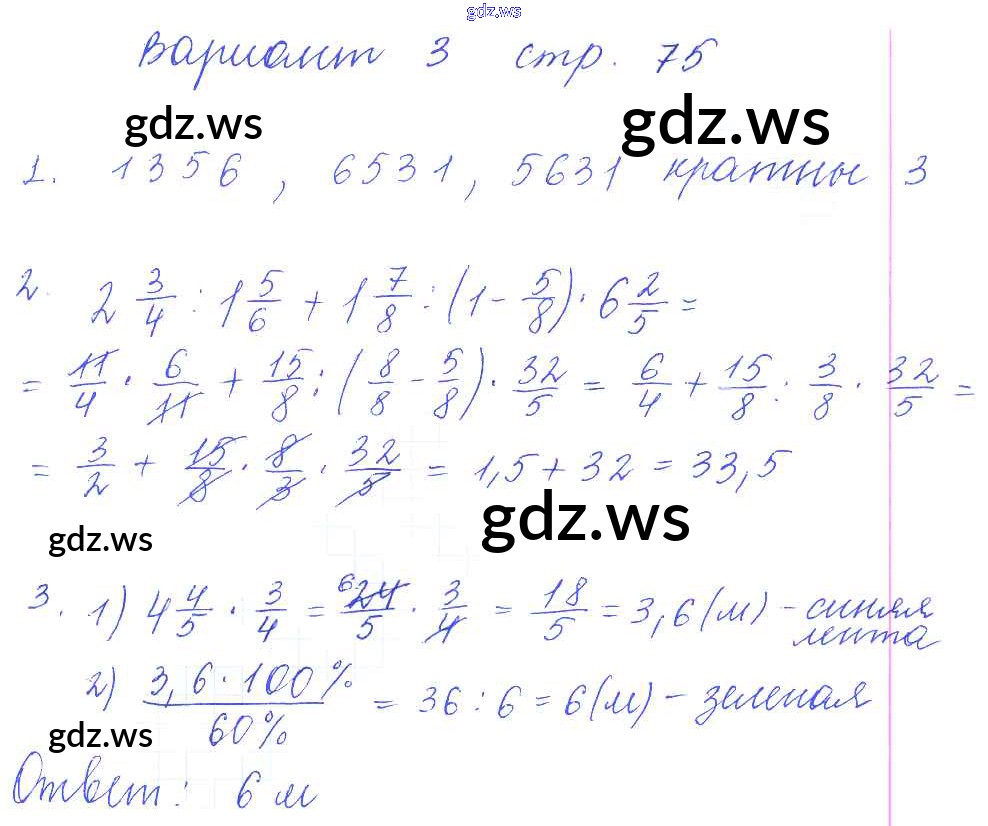 gdz.ws
Вариант 3 стр. 75
gdz.ws gdz.ws
1. 1356, 6531, 5631 кратны 3
2. 2 3/4 : 1 5/6 + 1 7/8 : (1 - 5/8) · 6 2/5 =
= 11/4 · 6/11 + 15/8 : (8/8 - 5/8) · 32/5 = 6/4 + 15/8 : 3/8 · 32/5 =
= 3/2 + 15/8 · 8/3 · 32/5 = 1,5 + 32 = 33,5
gdz.ws gdz.ws
3. 1) 4 4/5 · 3/4 = 6 24/5 · 3/4 = 18/5 = 3,6 (м) - синяя
лента
2) 3,6 · 100% / 60% = 36 : 6 = 6 (м) - зеленая
gdz.ws
Ответ: 6 м